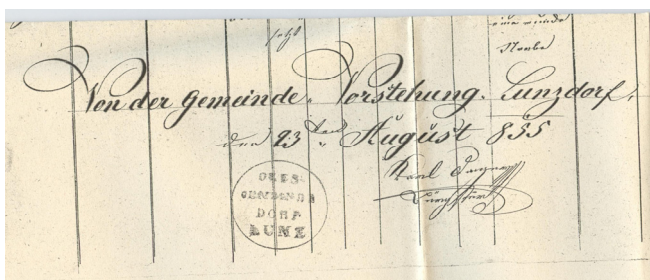 eine runde
Stube
Von der Gemeinde Vorstehung. Lunzdorf.
den 23ten August 855
Karl
ORTS
GEMEINDE
DORF
LUNZ